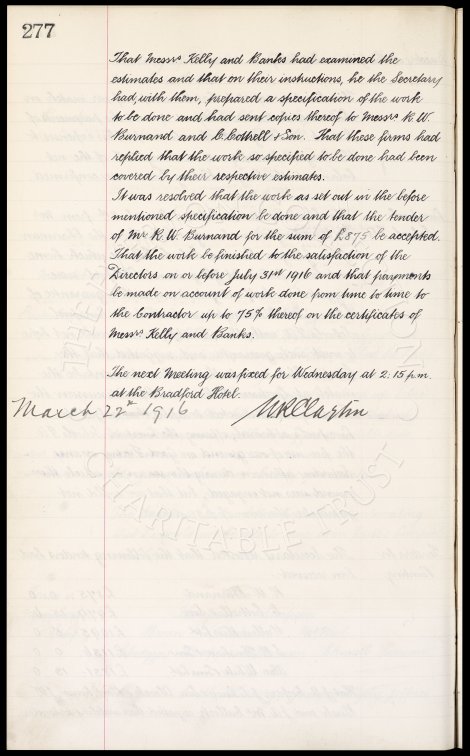 277
That Messrs Kelly and Banks had examined the
estimates and that on their instructions, he the Secretary
had, with them, prepared a specification of the work
to be done and had sent copies thereof to Messrs R. W.
Burnand and C. Cottrell & Son. That these firms had
replied that the work so specified to be done had been
covered by their respective estimates.
It was resolved that the work as set out in the before
mentioned specification be done and that the tender
of Mr R. W. Burnand for the sum of £875 be accepted.
That the work be finished to the satisfaction of the
Directors on or before July 31st 1916 and that payments
be made on account of work done from time to time to
the Contractor up to 75% thereof on the certificates of
Messrs Kelly and Banks.
The next Meeting was fixed for Wednesday at 2.15 p.m.
at the Bradford Hotel.
March 22nd 1916
CHARITABLE TRUST